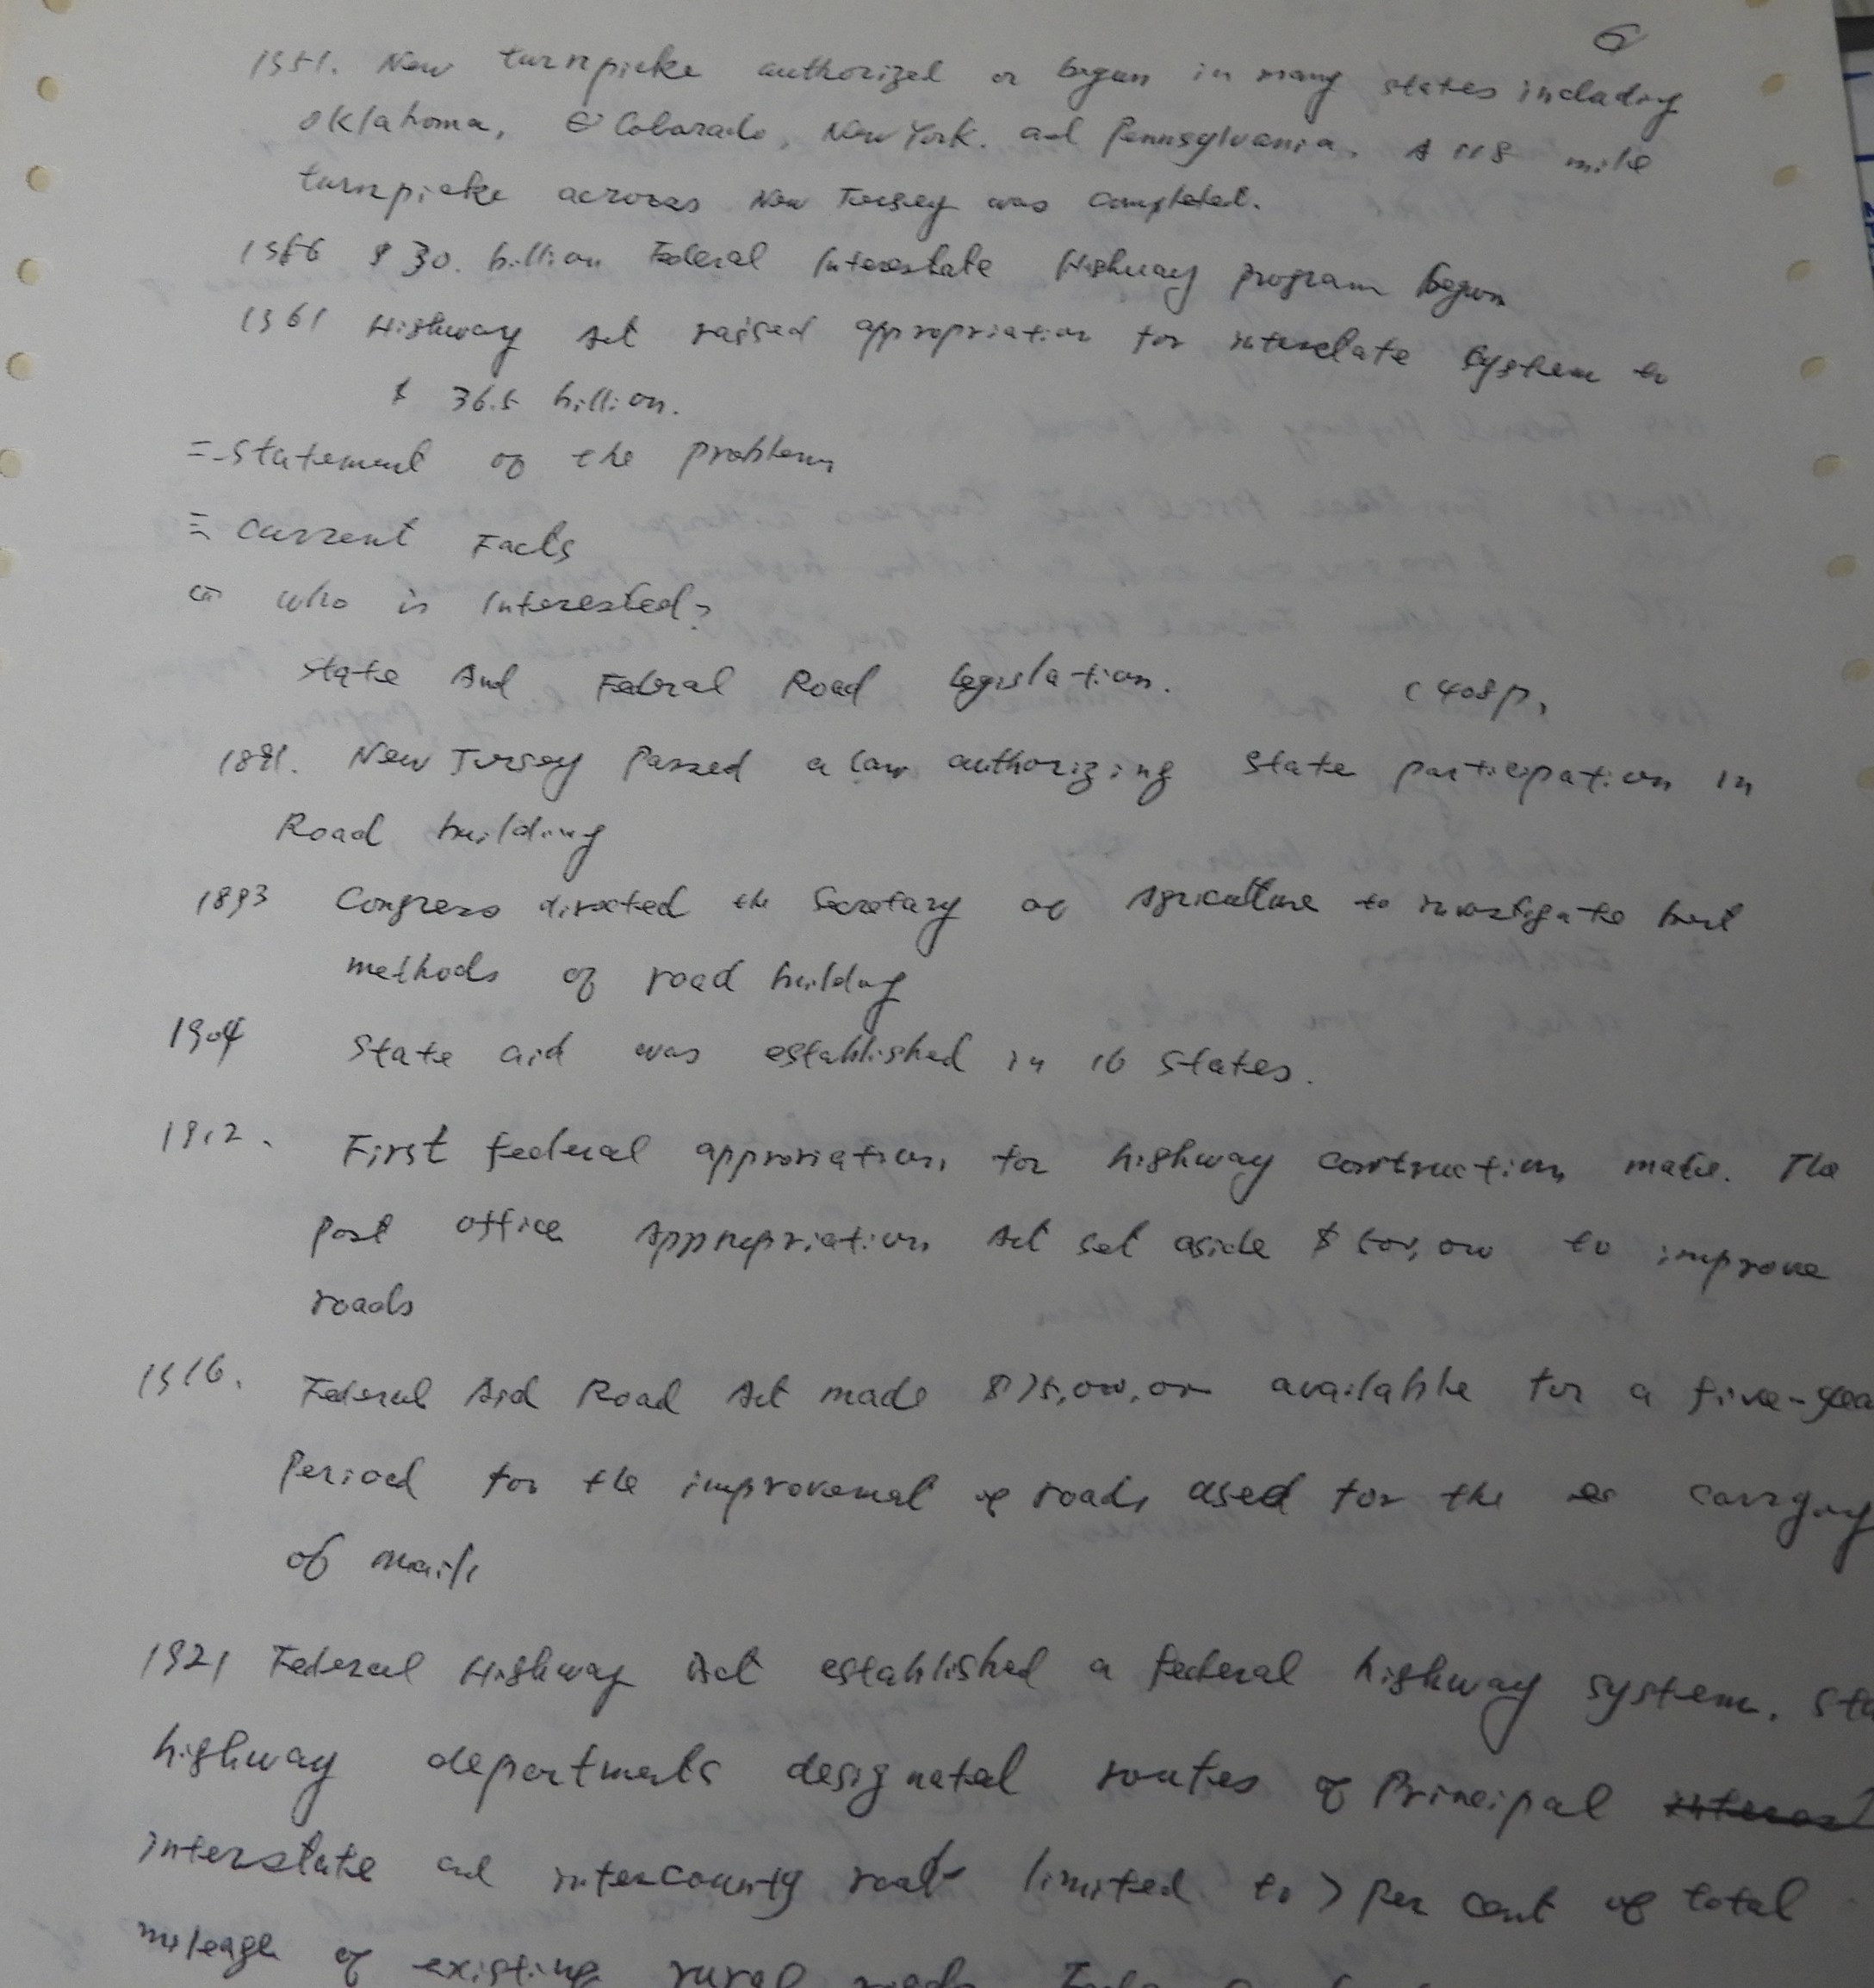 6
1951. New turnpicke authorized or begun in many states including
Oklahoma, Colorado, New York. and Pennsylvania. A 118 mile
turnpicke across New Jersey was completed.
1956 $ 30. billion Federal Interestate Highway program begun
1961 Highway Act raised appropriation for interstate system to
$ 36.5 billion.
= Statement of the problem
≡ Current Facts
who is interested?
State And Federal Road legislation. (408p,
1891. New Jersey Passed a law authorizing state participation in
Road building
1893 Congress directed the Secretary of Agriculture to investigate best
methods of road building
1904 State aid was established in 16 states.
1912. First federal approriation for highway construction made. The
post office Appropriation Act set aside $ 500,000 to improve
roads
1916. Federal Aid Road Act made $75,000,000 available for a five-yea
Period for the improvement of roads used for the carrying
of mails
1921 Federal Highway Act established a federal highway system. Sta
highway departments designated routes of Principal
interstate and intercounty roads limited to 7 per cent of total
mileage of existing rural roads.